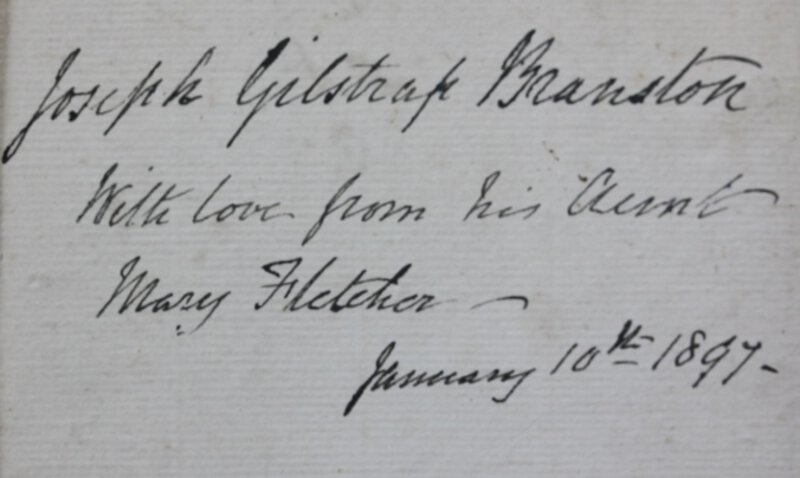 Joseph Gilstrap Branston
With love from his Aunt
Mary Fletcher —
January 10th 1897 -